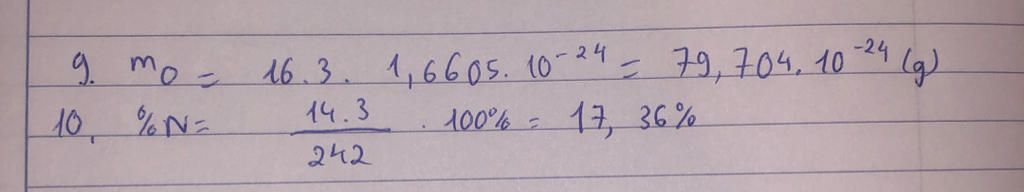 9. mO = 16.3. 1,6605.10⁻²⁴ = 79,704.10⁻²⁴ (g)
10, %N= 14.3/242 . 100% = 17, 36%